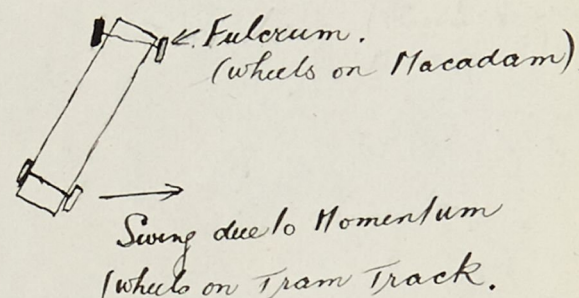 Fulcrum.
(wheels on Macadam)
Swing due to Momentum
(wheels on Tram Track.